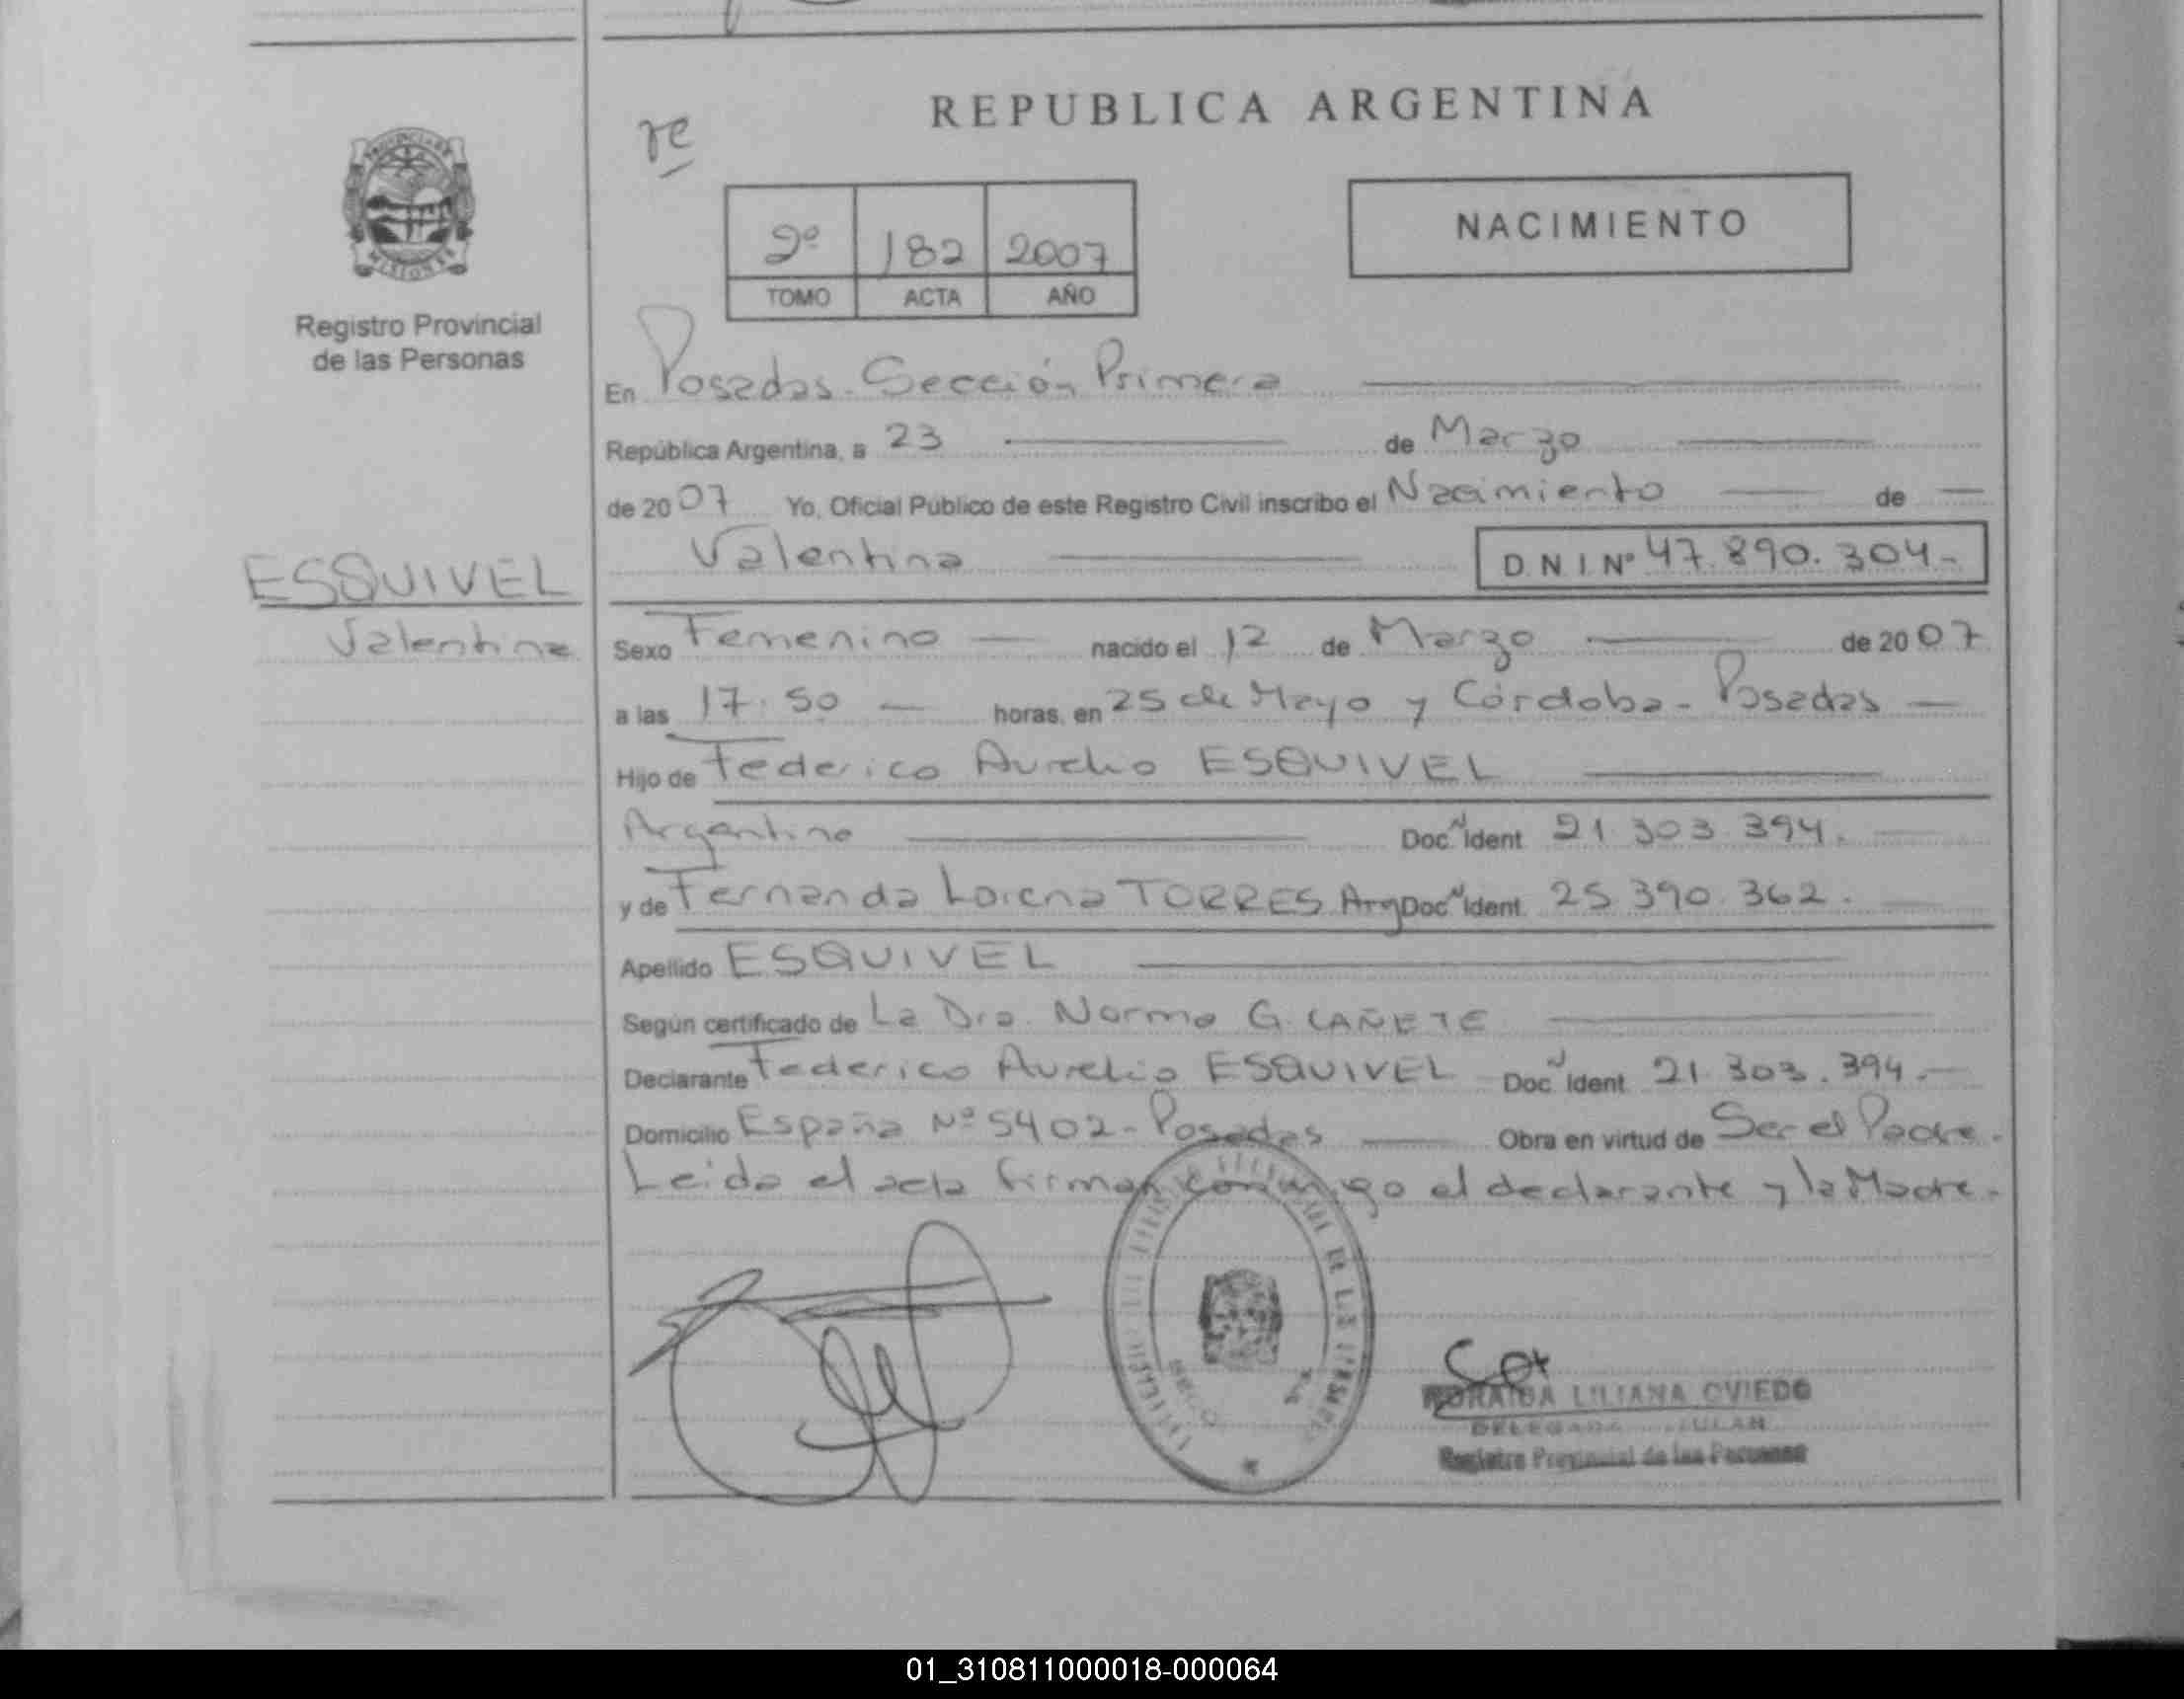 REPUBLICA ARGENTINA
re
2º 182 2007
TOMO ACTA AÑO
NACIMIENTO
PROVINCIA DE
MISIONES
Registro Provincial
de las Personas
En Posadas - Sección Primera
República Argentina, a 23 de Marzo
de 2007 Yo, Oficial Público de este Registro Civil inscribo el Nacimiento de
Valentina D.N.I. Nº 47.890.304-
ESQUIVEL
Valentina
Sexo Femenino nacido el 12 de Marzo de 2007
a las 17:50 horas, en 25 de Mayo y Córdoba - Posadas
Hijo de Federico Aurelio ESQUIVEL
Argentino Doc. N Ident. 21.303.394.
y de Fernanda Lorena TORRES Arg Doc. N Ident. 25.390.362.
Apellido ESQUIVEL
Según certificado de La Dra. Norma G. CAÑETE
Declarante Federico Aurelio ESQUIVEL Doc. N Ident. 21.303.394.-
Domicilio España Nº 5402 - Posadas Obra en virtud de Ser el Padre.
Leida el acta firman conmigo el declarante y la Madre.
LILIANA OVIEDO
DELEGADA
Registro Provincial de las Personas
01_310811000018-000064